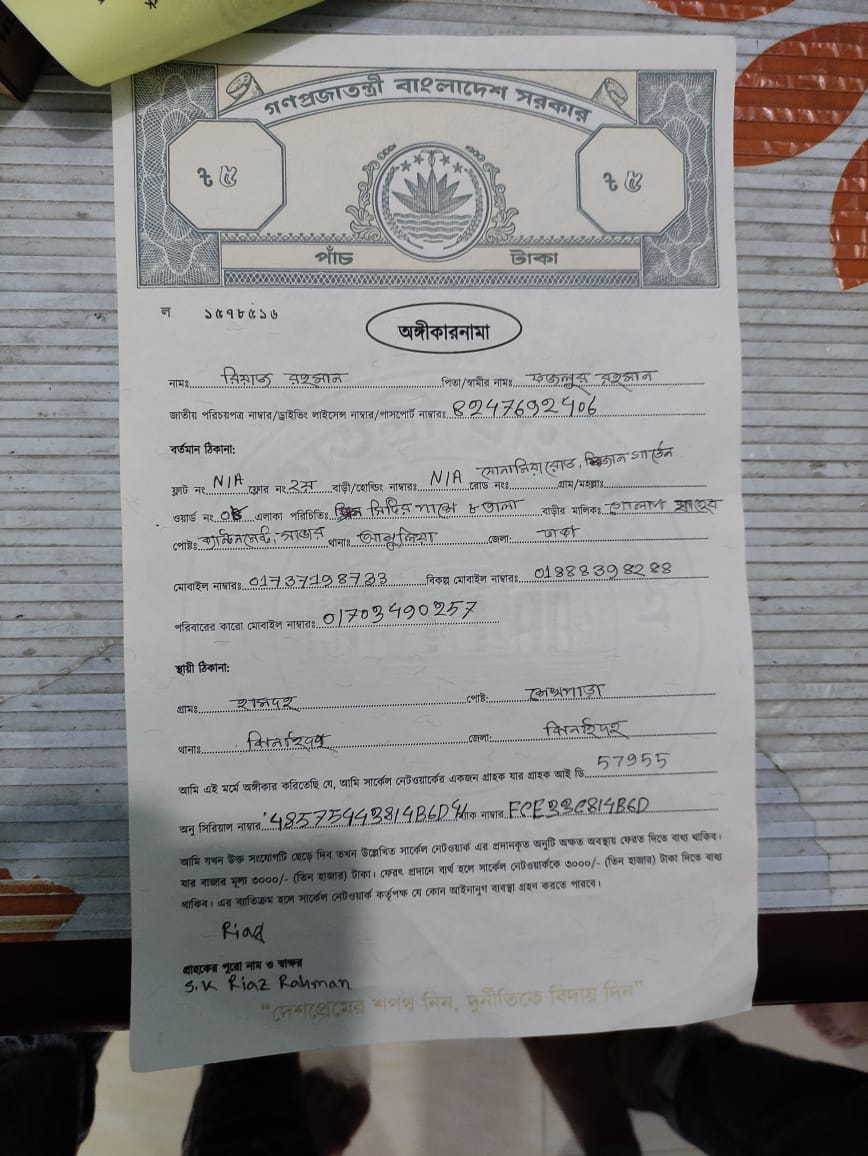 গণপ্রজাতন্ত্রী বাংলাদেশ সরকার
৳ ৫ ৳ ৫
পাঁচ টাকা
ন ১৫৭৮৫১৬
অঙ্গীকারনামা
নামঃ রিয়াজ রহমান পিতা/স্বামীর নামঃ ফজলুর রহমান
জাতীয় পরিচয়পত্র নাম্বার/ড্রাইভিং লাইসেন্স নাম্বার/পাসপোর্ট নাম্বারঃ 8247692406
বর্তমান ঠিকানা:
ফ্লাট নং N/A ফ্লোর নং ২য় বাড়ী/হোল্ডিং নাম্বারঃ N/A রোড নংঃ সোনালিয়া রোড, গ্রাম/মহল্লাঃ গার্ডেন
ওয়ার্ড নং 08 এলাকা পরিচিতিঃ সিঁড়ির পাশে ৮ তালা বাড়ীর মালিকঃ গোলাপ সাহেব
পোষ্টঃ সাভার থানাঃ আশুলিয়া জেলা: ঢাকা
মোবাইল নাম্বারঃ 01737198733 বিকল্প মোবাইল নাম্বারঃ 01888398288
পরিবারের কারো মোবাইল নাম্বারঃ 01703490257
স্থায়ী ঠিকানা:
গ্রামঃ পোষ্ট:
থানাঃ ঝিনাইদহ জেলা: ঝিনাইদহ
আমি এই মর্মে অঙ্গীকার করিতেছি যে, আমি সার্কেল নেটওয়ার্কের একজন গ্রাহক যার গ্রাহক আই ডি 57955
অনু সিরিয়াল নাম্বার 485754433814B6D ম্যাক নাম্বার FCE33C814B6D
আমি যখন উক্ত সংযোগটি ছেড়ে দিব তখন উল্লেখিত সার্কেল নেটওয়ার্ক এর প্রদানকৃত অনুটি অক্ষত অবস্থায় ফেরত দিতে বাধ্য থাকিব।
যার বাজার মূল্য ৩০০০/- (তিন হাজার) টাকা। ফেরৎ প্রদানে ব্যর্থ হলে সার্কেল নেটওয়ার্ককে ৩০০০/- (তিন হাজার) টাকা দিতে বাধ্য
থাকিব। এর ব্যতিক্রম হলে সার্কেল নেটওয়ার্ক কর্তৃপক্ষ যে কোন আইনানুগ ব্যবস্থা গ্রহন করতে পারবে।
Riad
গ্রাহকের পুরো নাম ও স্বাক্ষর
S.K Riaz Rahman
“দেশপ্রেমের শপথ নিন, দুর্নীতিকে বিদায় দিন”